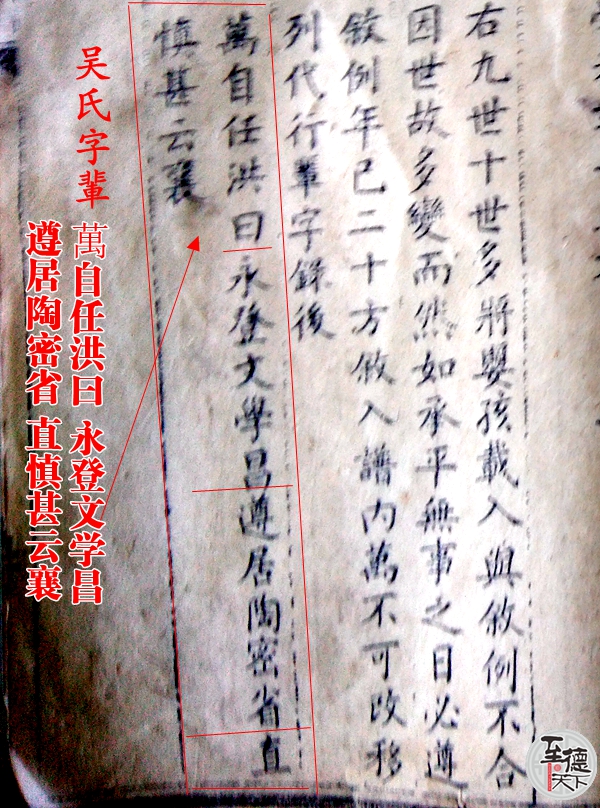 右九世十世多將嬰孩載入與敘例不合
因世故多變而然如承平無事之日必遵
敘例年已二十方敘入譜內萬不可改移
列代行輩字錄後
萬自任洪曰永登文學昌遵居陶密省直
慎甚云襄
吴氏字輩
萬自任洪曰 永登文学昌
遵居陶密省 直慎甚云襄
至德天下